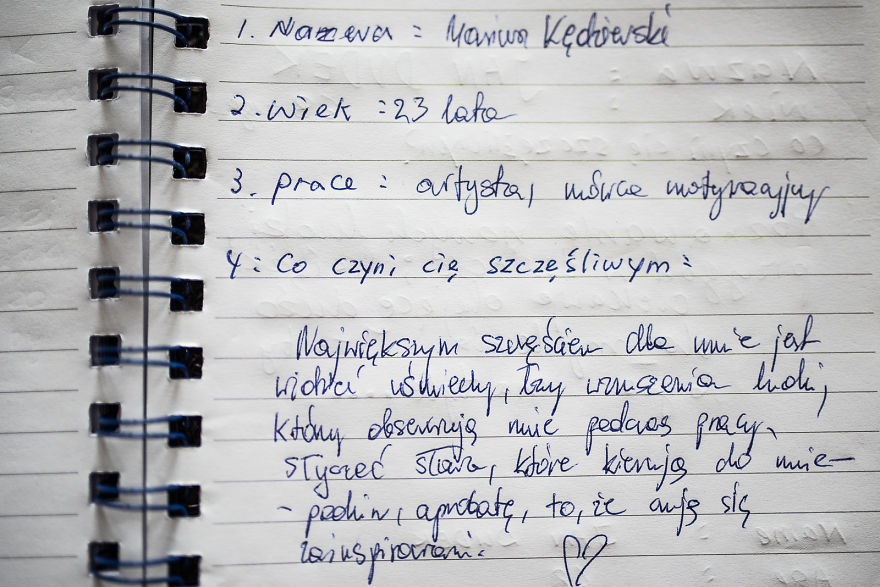 1. Nazwa : Mariusz Kędzierski
2. wiek : 23 lata
3. praca : artysta, mówca motywacyjny
4: Co czyni cię szczęśliwym :
Największym szczęściem dla mnie jest
widzieć uśmiechy, łzy wzruszenia ludzi,
którzy obserwują mnie podczas pracy,
słyszeć słowa, które kierują do mnie –
– podziw, aprobatę, to, że czują się
zainspirowani.